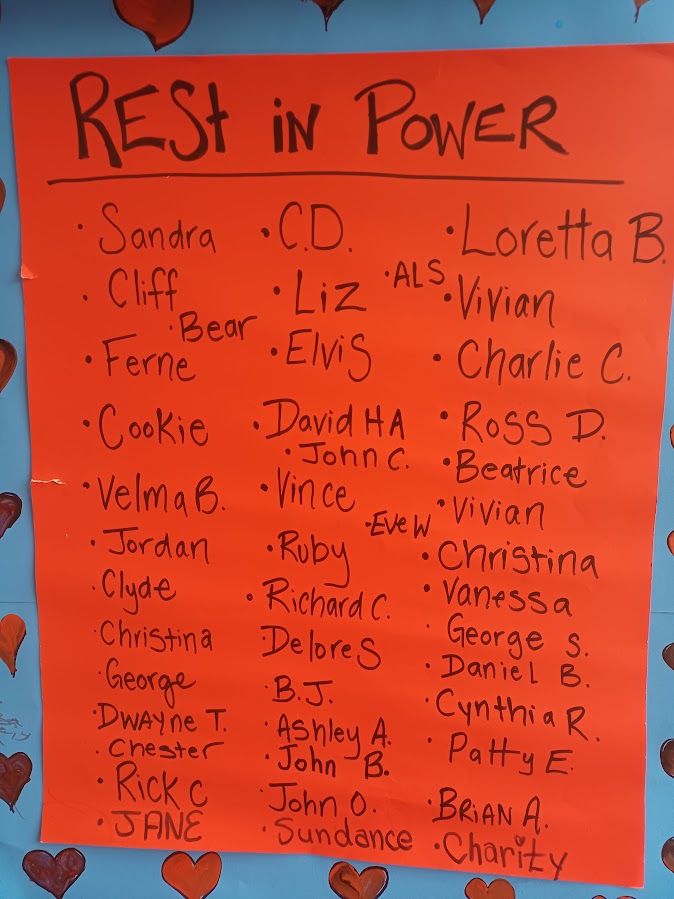 REST iN POWER
· Sandra
· Cliff
· Bear
· Ferne
· Cookie
· Velma B.
· Jordan
· Clyde
· Christina
· George
· DWAYNE T.
· Chester
· Rick C
· JANE
· C.D.
· Liz
· ElviS
· David H A
· John C.
· Vince
· Eve W
· Ruby
· Richard C.
DeloreS
· B.J.
· Ashley A.
· John B.
· John O.
· Sundance
· Loretta B.
· ALS
· Vivian
· Charlie C.
· Ross D.
· Beatrice
· Vivian
· Christina
· Vanessa
· George S.
· Daniel B.
· Cynthia R.
· Patty E.
· BRIAN A.
· Charity